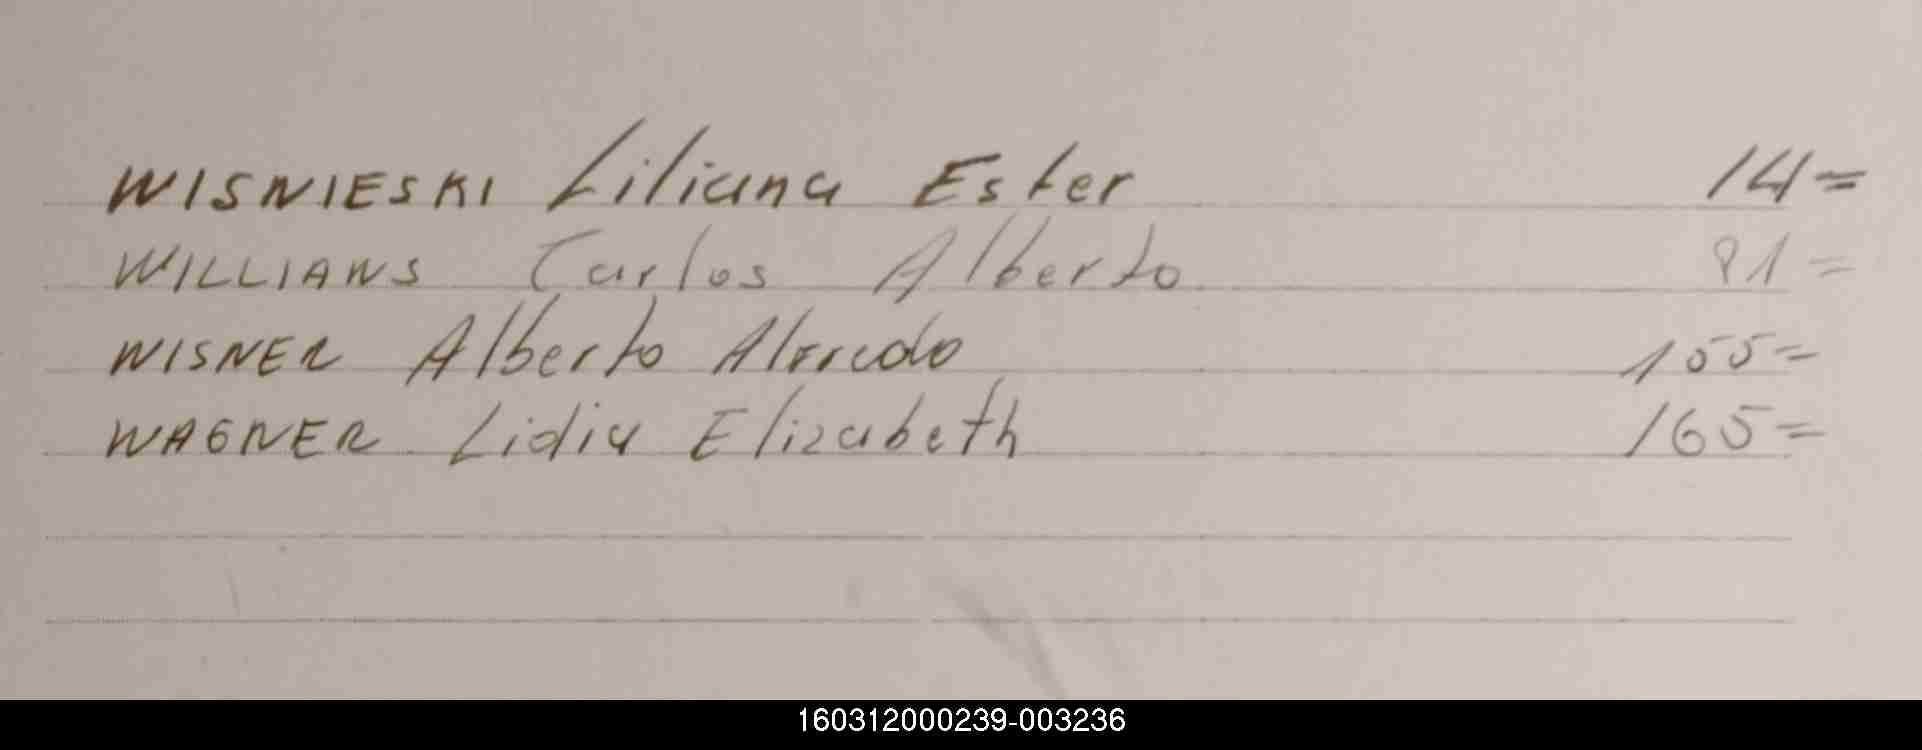 WISNIESKI Liliana Ester 14=
WILLIANS Carlos Alberto 81=
WISNER Alberto Alfredo 155=
WAGNER Lidia Elizabeth 165=
160312000239-003236